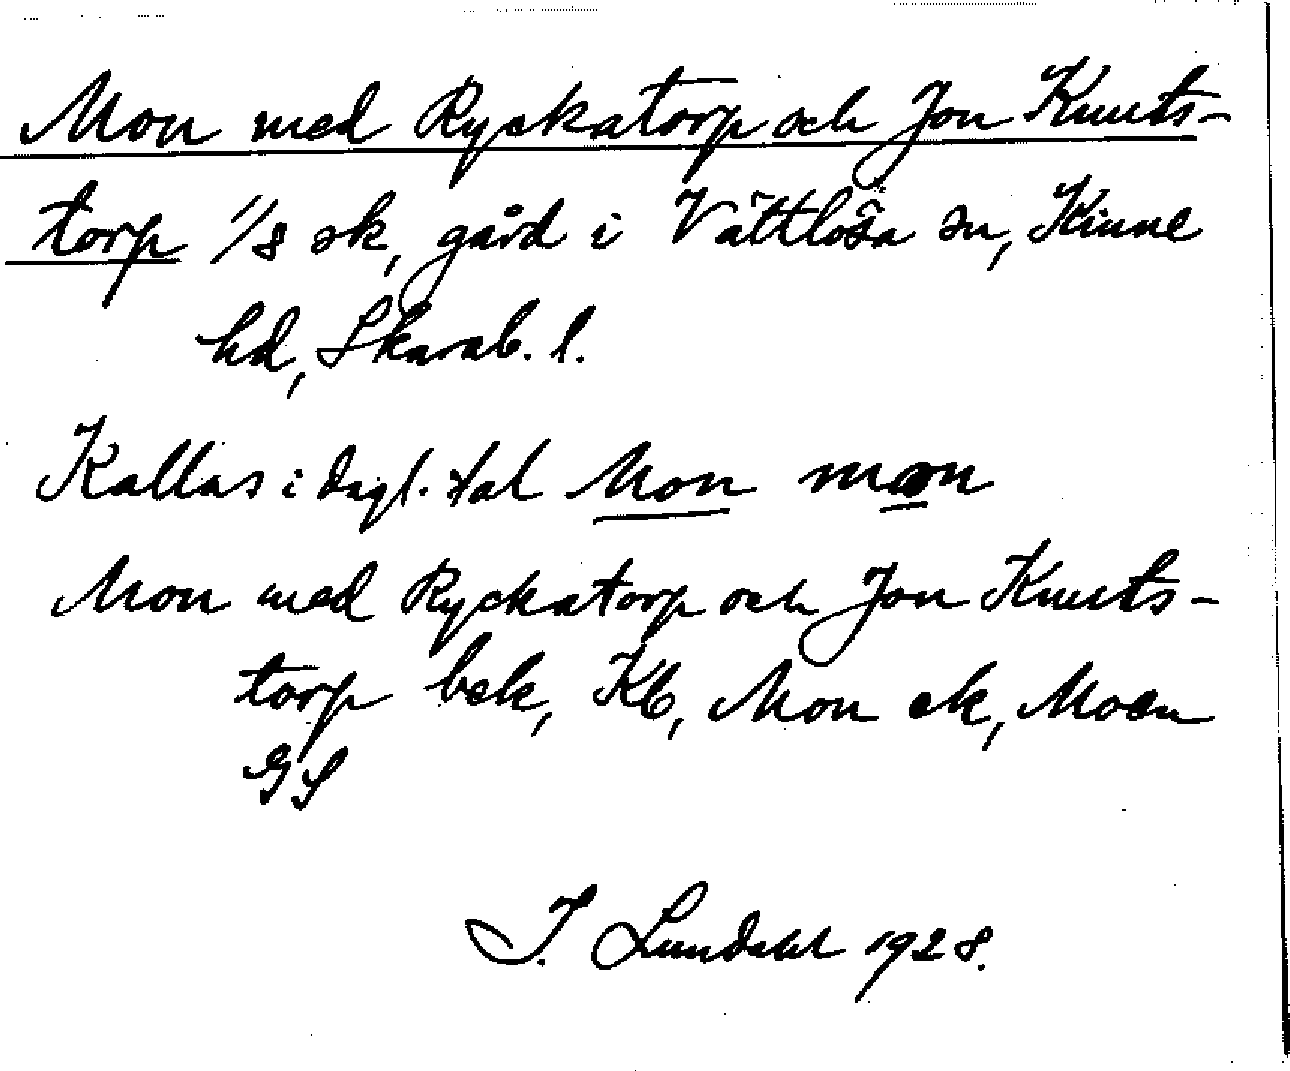 Mon med Ryckatorp och Jon Knuts-
torp 1/8 sk, gård i Vättlösa sn, Kinne
hd, Skarab. l.
Kallas i dagl. tal Mon mɷn
Mon med Ryckatorp och Jon Knuts-
torp bek, Kb, Mon ek, Moen
GS
I. Lundahl 1928.